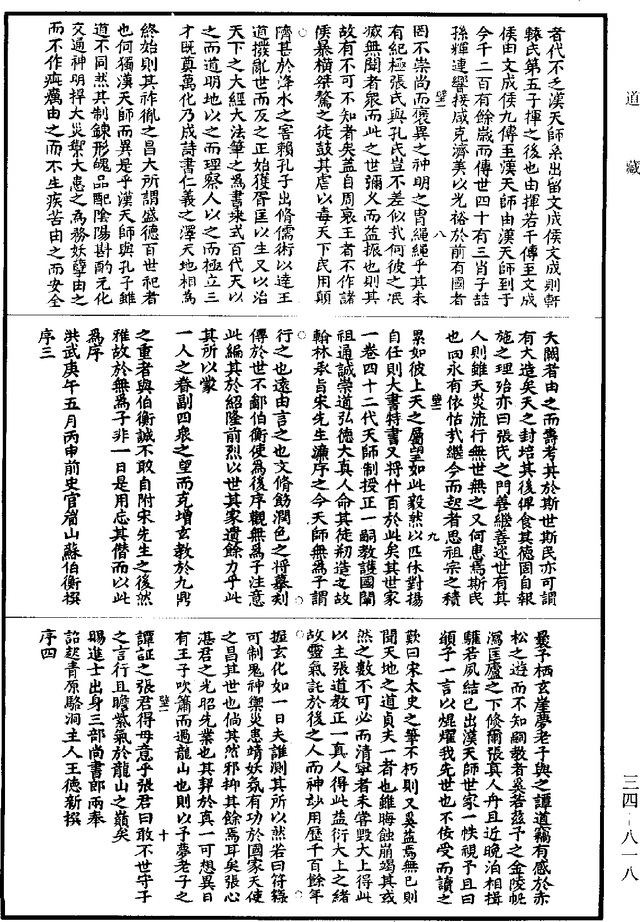 道藏
者代不乏漢天師系出留文成侯文成則軒
轅氏第五子揮之後也由揮若干傳至文成
侯由文成侯九傳至漢天師由漢天師到于
今千二百有餘歲而傳世四十有三肖子喆
孫輝連響接咸克濟美以光裕於前有國者
罔不崇尚而褒異之神明之胄繩繩乎其未
有紀極張氏與孔氏豈不差似我何彼之泯
滅無聞者衆而此之世彌久而益振也則其
故有不可不知者矣蓋自周衰王者不作諸
侯暴橫桀驁之徒鼓其虐以毒天下民用顛
隮甚於洚水之害賴孔子出脩儒術以達王
道撥亂世而反之正始獲胥匡以生又以治
天下之大經大法筆之爲書乘式百代天以
之而道明地以之而理察人以之而極立三
才既奠萬化乃成詩書仁義之澤天地相爲
終始則其祚胤之昌大所謂盛德百世祀者
也何獨漢天師而異是乎漢天師與孔子雖
道不同然其制鍊形魄品配陰陽斟酌元化
交通神明捍大災禦大患之爲務妖孽由之
而不作疵癘由之而不生疾苦由之而安全
夭閼者由之而壽考其於斯世斯民亦可謂
有大造矣天之封培其後俾食其德固自報
施之理殆亦曰張氏之門善繼善述世有其
人則雖天災流行無世無之又何患焉斯民
也而永有依怙我繼今而起者思祖宗之積
累如彼上天之屬望如此毅然以匹休對揚
自任則大書特書又將什百於此矣其世家
一卷四十二代天師制授正一嗣教護國闡
祖通誠崇道弘德大真人命其徒刱造攵故
翰林承旨宋先生濂序之今天師無爲子謂
行之也遠由言之也文脩飭潤色之將摹刻
傳於世不鄙伯衡使爲後序觀無爲子注意
此編其於紹隆前烈以世其家遺餘力乎此
其所以蒙
一人之眷副四衆之望而克增玄教於九鼎
之重者與伯衡誠不敢自附宋先生之後然
雅故於無爲子非一日是用忘其僭而以此
爲序
洪武庚午五月丙申前史官𥈭山蘇伯衡撰
序三
曇子栖玄崖夢老子與之譚道竊有感於赤
松之遊而不知嗣教者奚若茲予之金陵帆
瀉匡廬之下倏爾張真人丹且近晩泊相揖
驩若夙結已出漢天師世家一帙視予且曰
頟子一言以焜燿我先世也不佞受而讀之
歎曰宋太史之筆不朽則又奚益焉無已則
聞天地之道貞夫一者也雖晦蝕崩竭其或
然之數不可必而清寧者未嘗毀大上得此
以主張道教正一真人得此益衍大上之緒
故靈氣託於後之人而神玅用歷千百餘年
握玄化如一日夫誰測其所以然若曰符籙
可制鬼神禦災患靖妖氛有功於國家天使
之昌其世也倘其然邪抑其餘焉耳矣張心
湛君之光昭先業也其羿於真一可想異日
有王子吹簫而過龍山也則以予夢老子之
譚証之張君得毋意乎張君曰敢不世守子
之言行且瞻紫氣於龍山之巔矣
賜進士出身三部尚書郎兩奉
詔起青原駱洞主人王德新撰
序四
壁二
八
壁二
九
壁二
十
三四-八一八